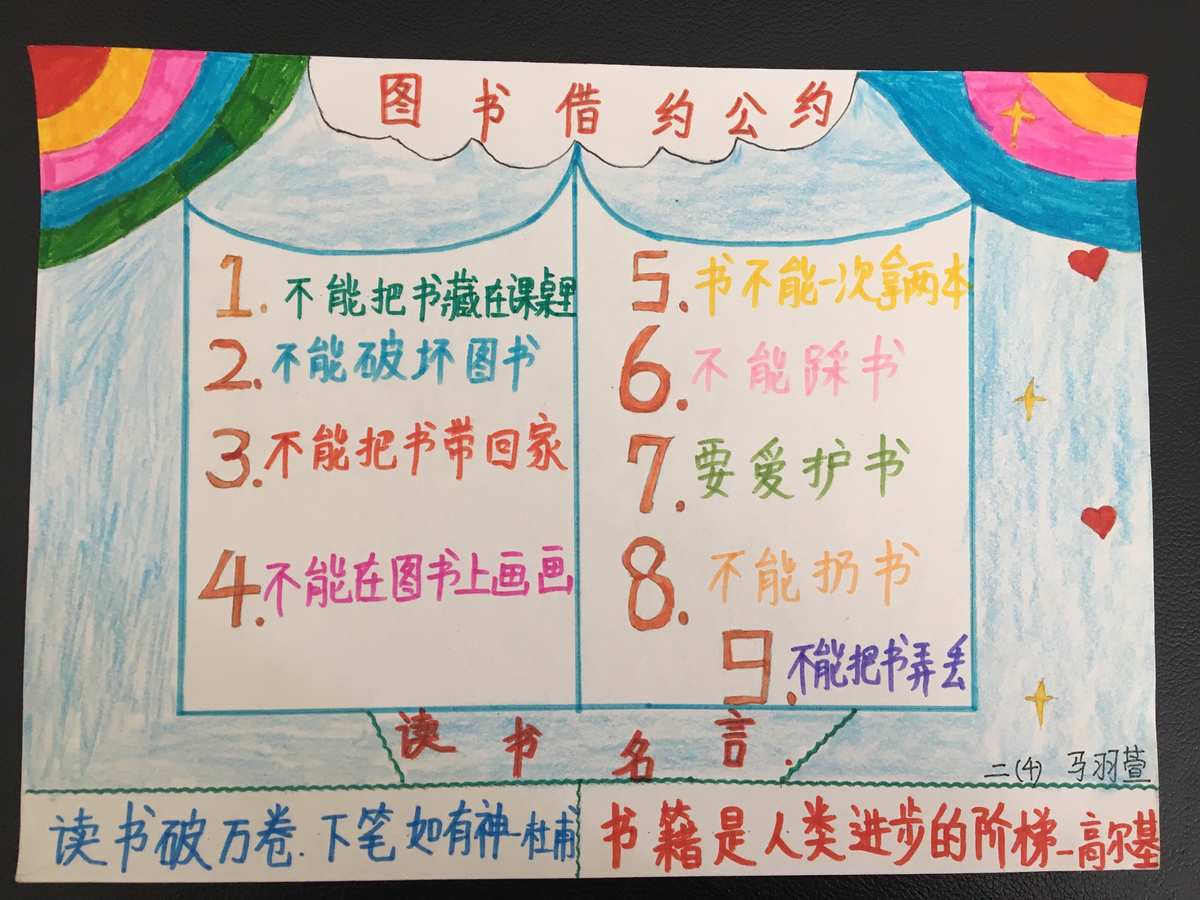 图书借约公约
1. 不能把书藏在课桌里
2. 不能破坏图书
3. 不能把书带回家
4. 不能在图书上画画
5. 书不能一次拿两本
6. 不能踩书
7. 要爱护书
8. 不能扔书
9. 不能把书弄丢
读书名言.
二(4) 马羽萱
读书破万卷.下笔如有神-杜甫
书籍是人类进步的阶梯-高尔基